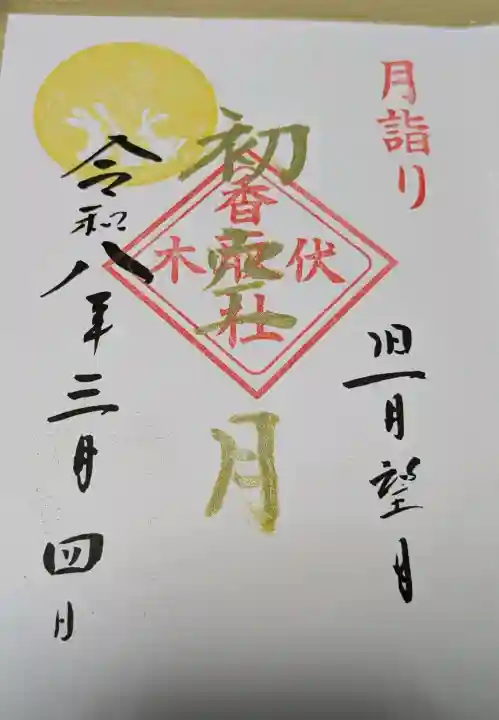 月詣り
旧一月望月
初空月
香取社
伏木
令和八年三月四日